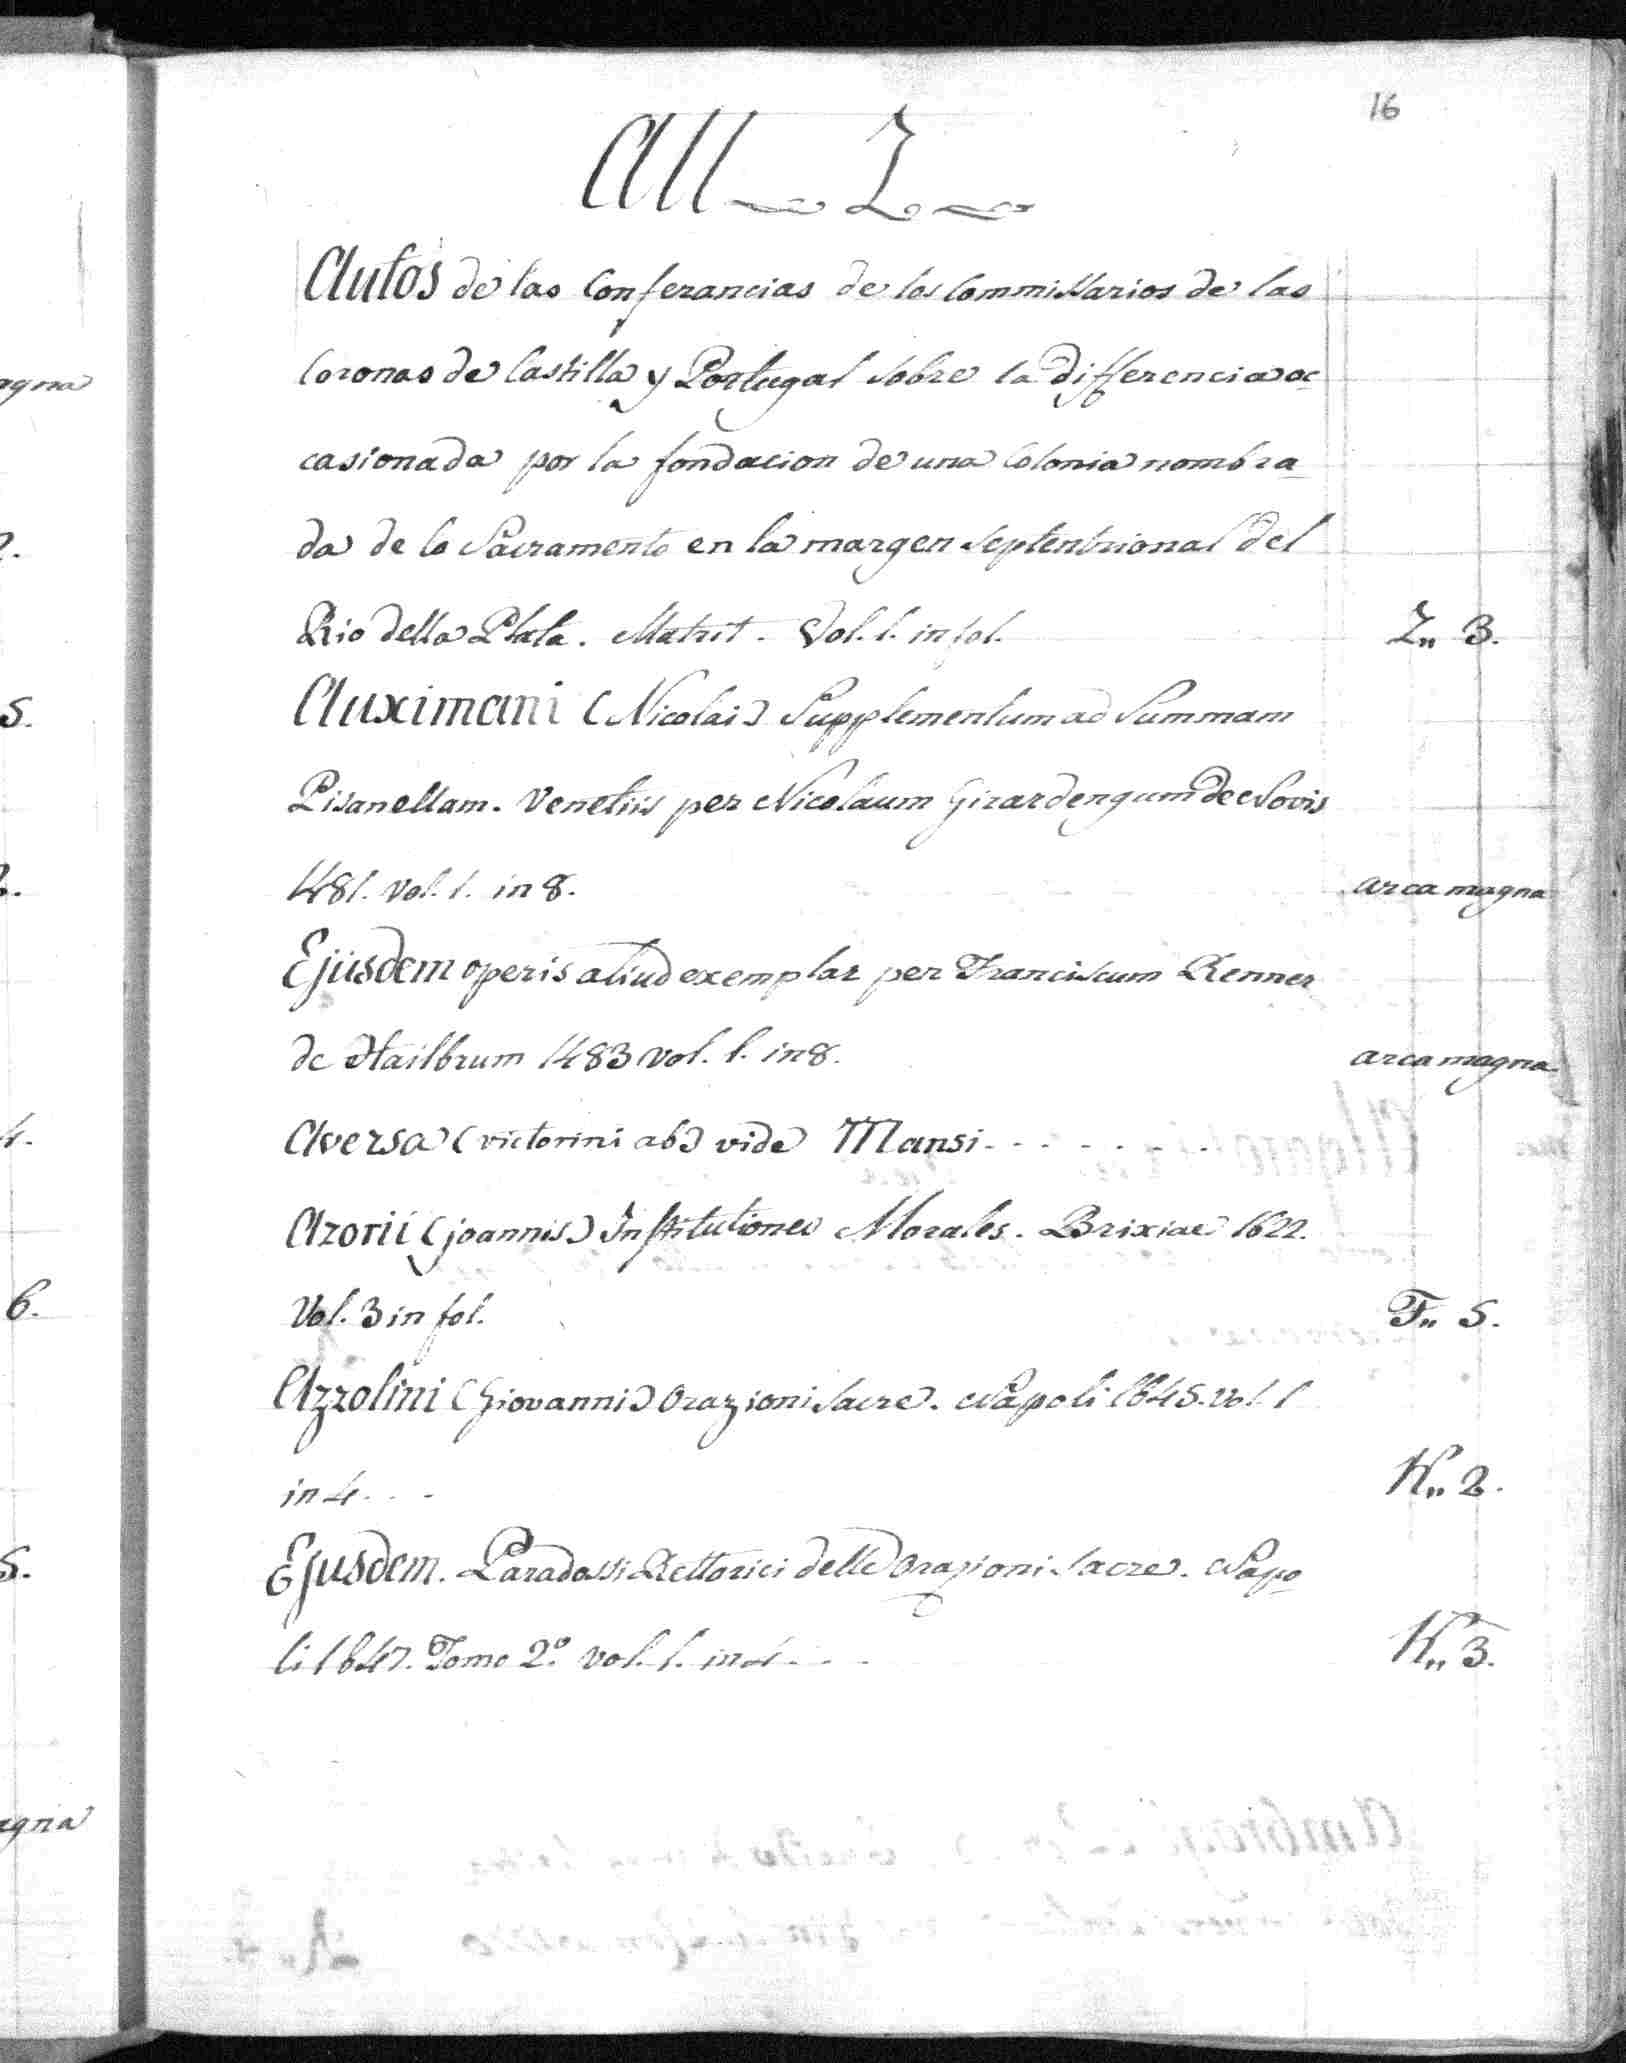 16
AU Z
Autos de las Conferancias de los Commissarios de las
Coronas de Castilla y Portugal sobre la differencia oc-
casionada por la fondacion de una Colonia nombra-
da de lo Sacramento en la margen septentrional del
Rio della Plata. Matrit. Vol. 1. in fol. Z,, 3.
Auximani (Nicolai) Supplementum ad Summam
Pisanellam. Venetiis per Nicolaum Girardengum de Novis
1481. vol. 1. in 8. arca magna
Ejusdem operis aliud exemplar per Franciscum Renner
de Hailbrum 1483 vol. 1. in 8. arca magna
Aversa (victorini ab) vide Mansi - - - - - -
Azorii (joannis) Institutiones Morales. Brixiae 1622.
Vol. 3 in fol. F,, 5.
Azzolini (Giovanni) Orazioni Sacre. Napoli 1645. vol. 1
in 4 - - - K,, 2.
Ejusdem. Paradossi Rettorici delle Orazioni Sacre. Napo-
li 1647. Tomo 2º. vol. 1. in 4 - - - K,, 3.